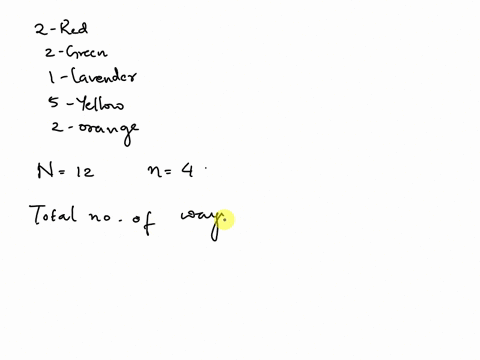 2-Red
2-Green
1-Lavender
5-Yellow
2-orange
N=12 n=4
Total no. of way.